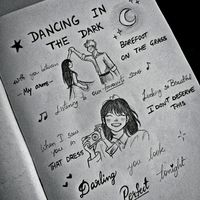 DANCING IN
THE DARK
with you between
My arms
BAREFOOT
ON THE GRASS
Listening to our favourite song
Looking so Beautiful
I DON'T DESERVE
THIS
When I saw
you in
THAT DRESS
Darling
you look
Perfect
tonight